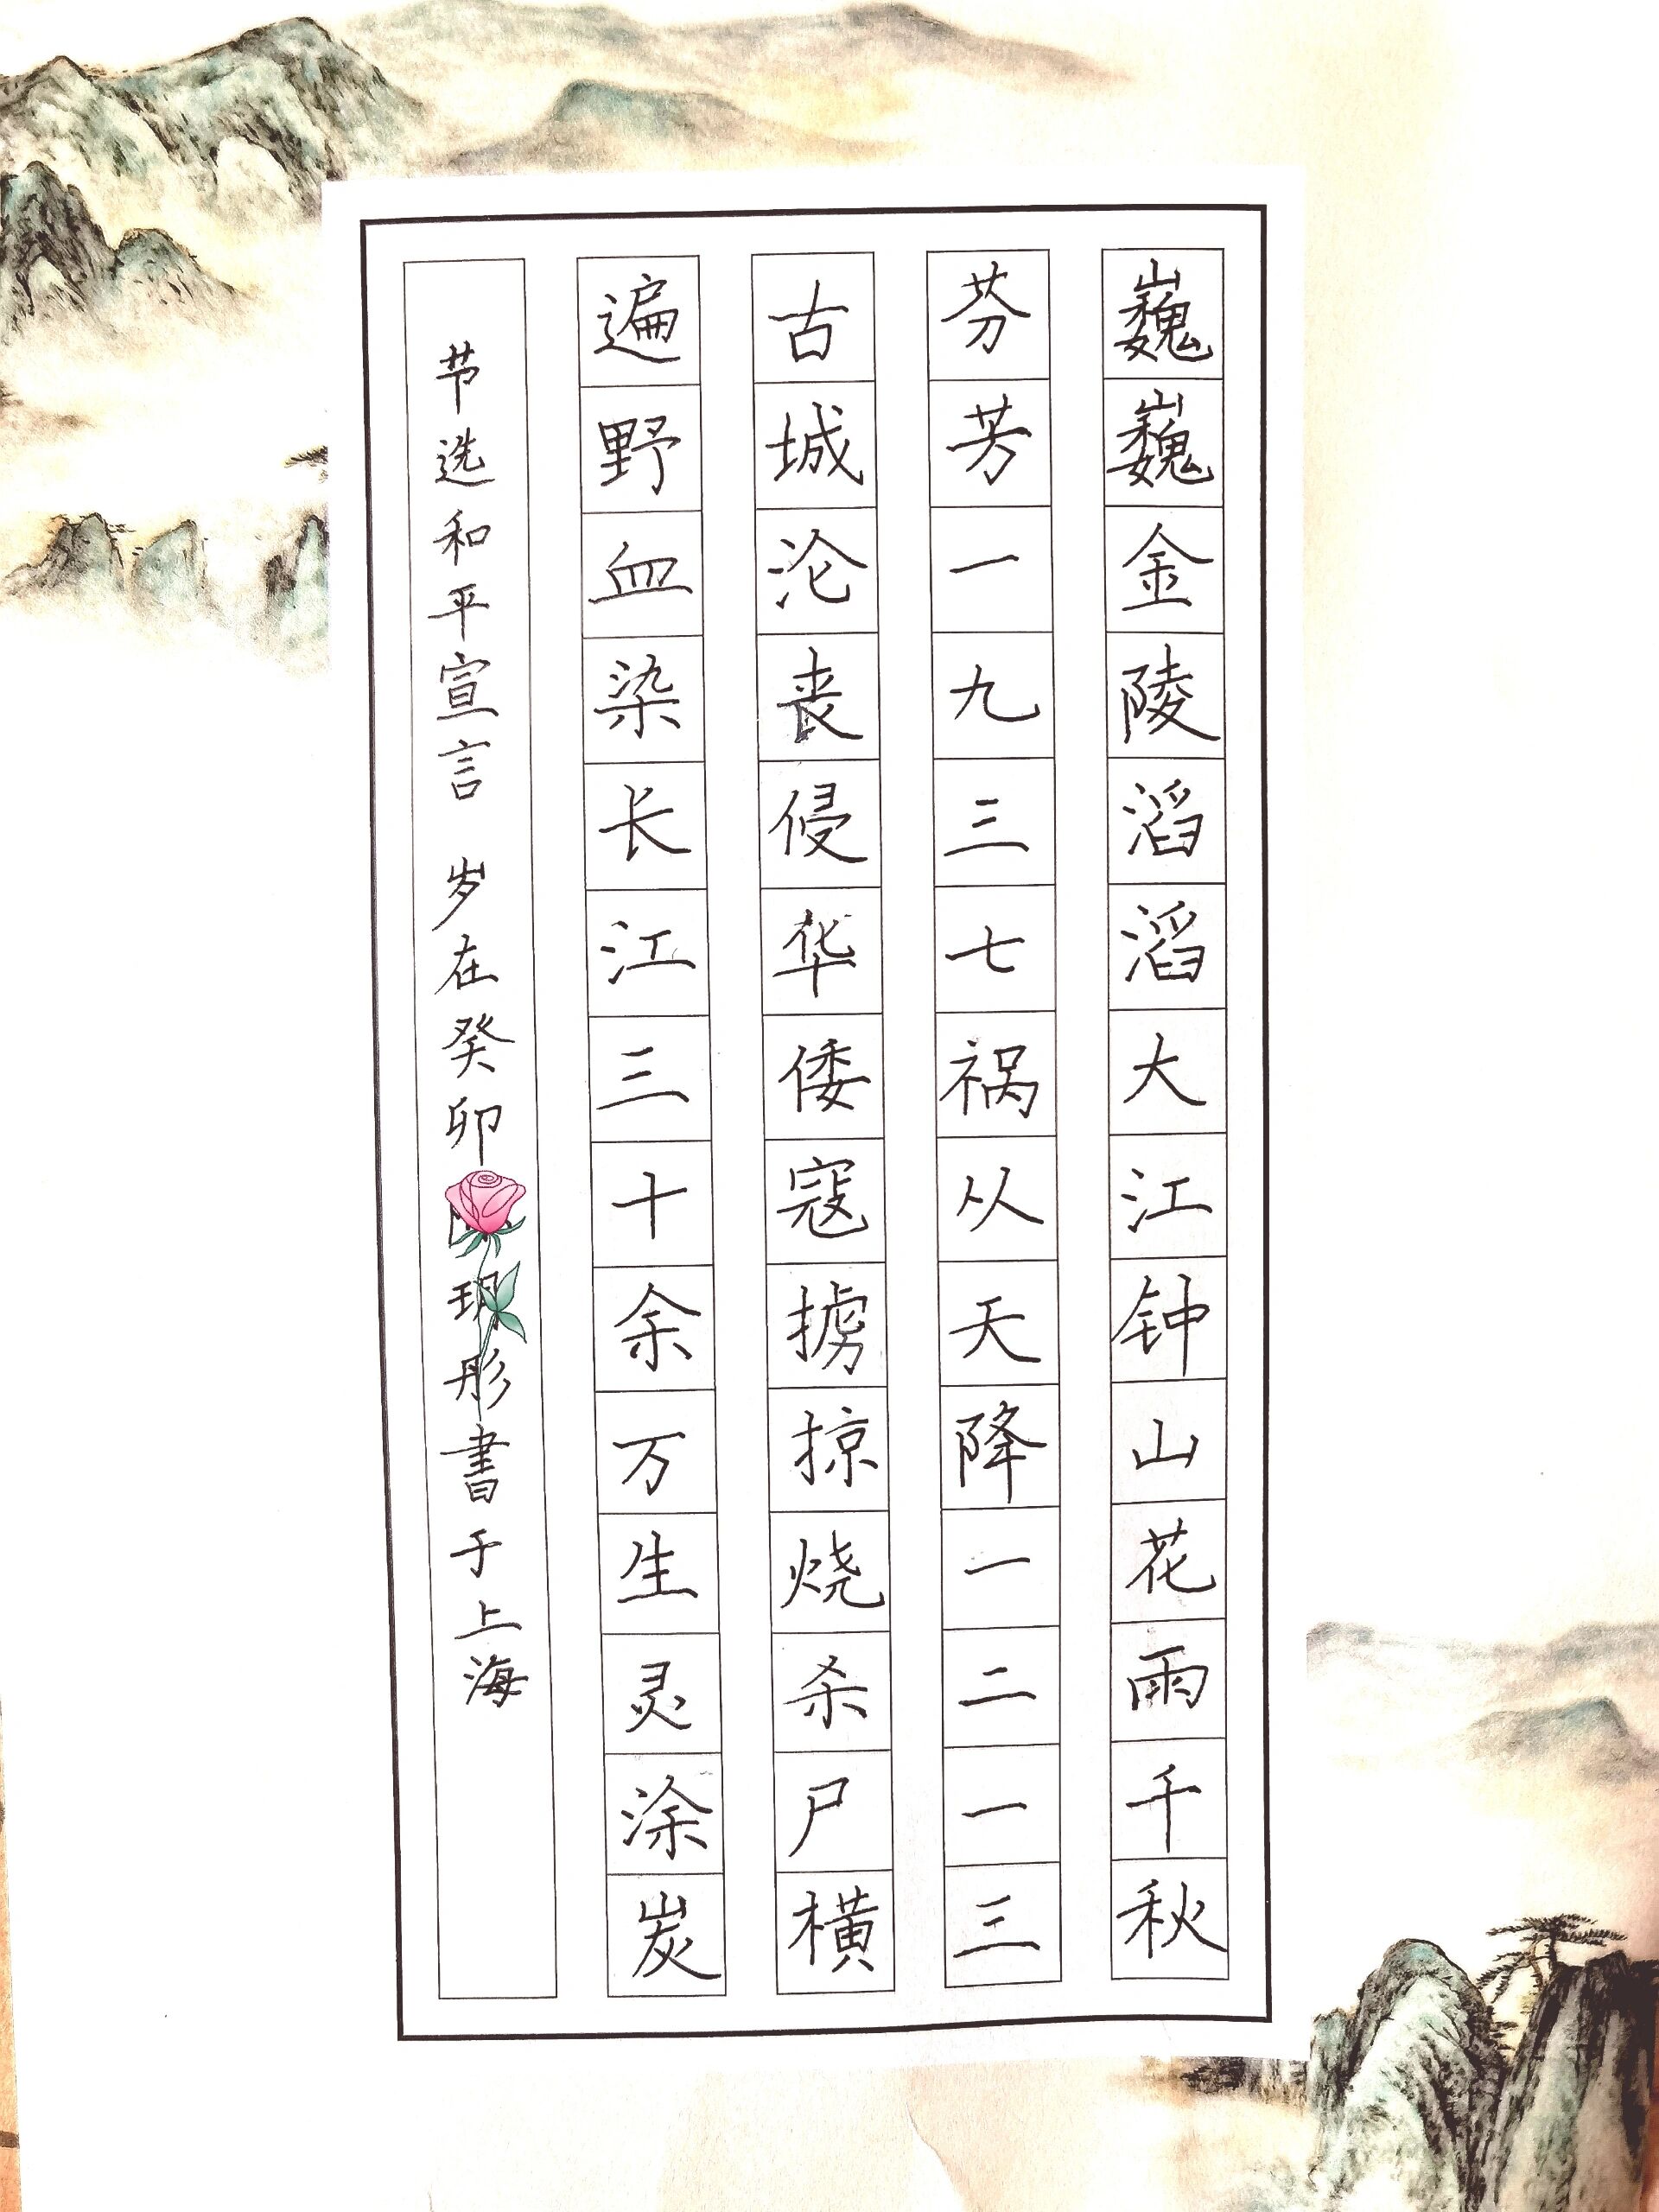 巍巍金陵滔滔大江钟山花雨千秋
芬芳一九三七祸从天降一二一三
古城沦丧侵华倭寇掳掠烧杀尸横
遍野血染长江三十余万生灵涂炭
节选和平宣言 岁在癸卯 彤書于上海